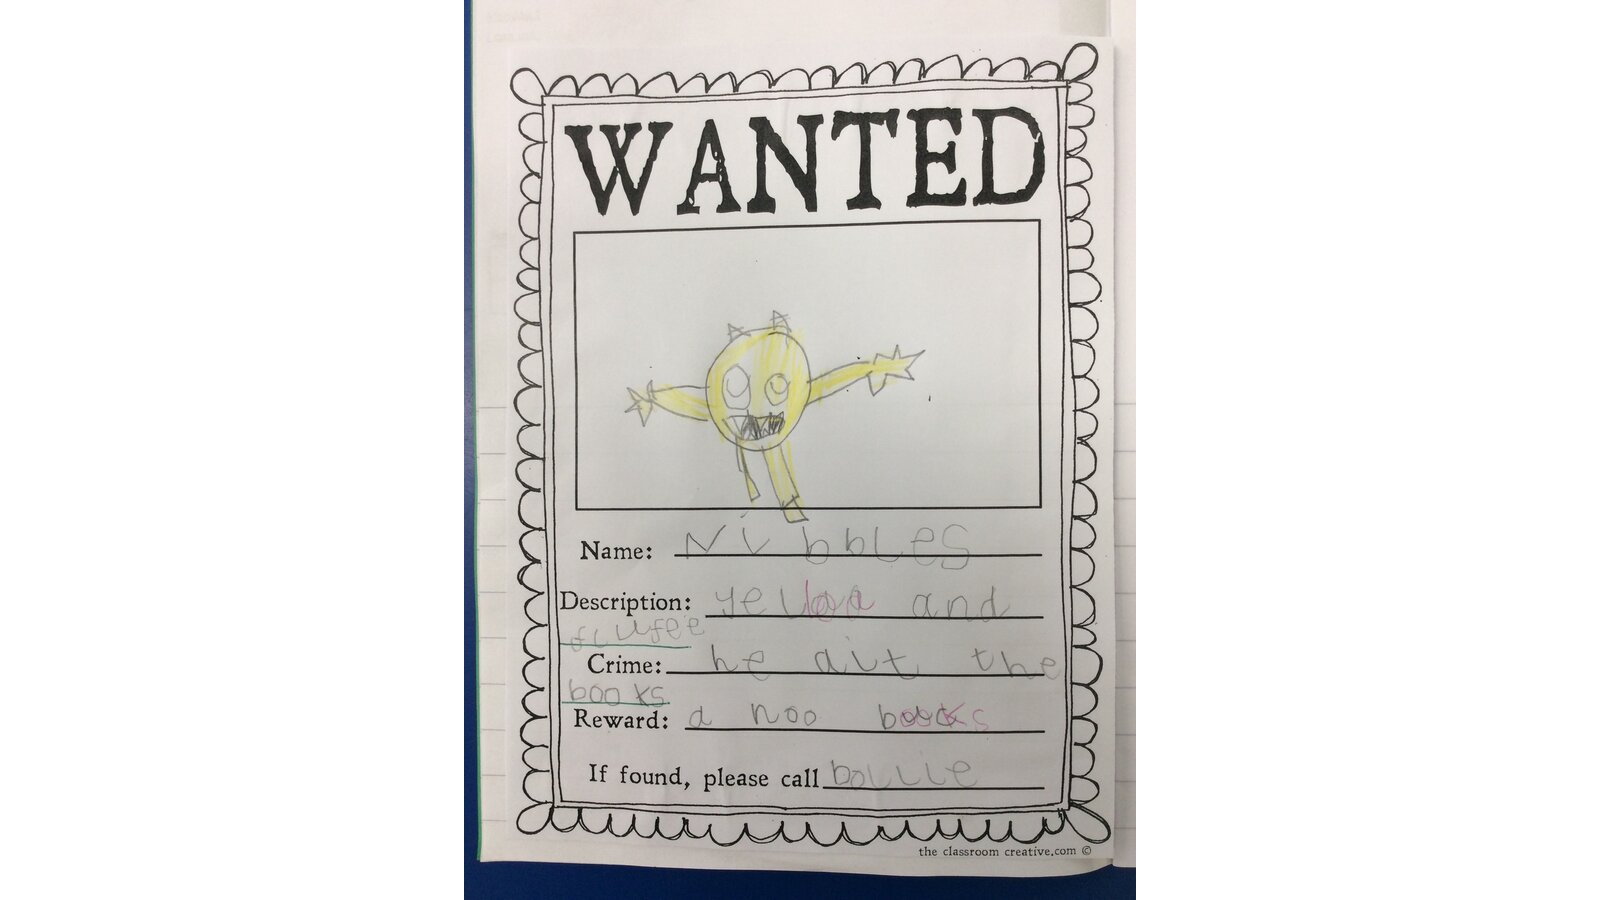 WANTED
Name: Nibbles
Description: yellow and
flufee
Crime: he ait the
books
Reward: a noo books
If found, please call
the classroom creative.com ©